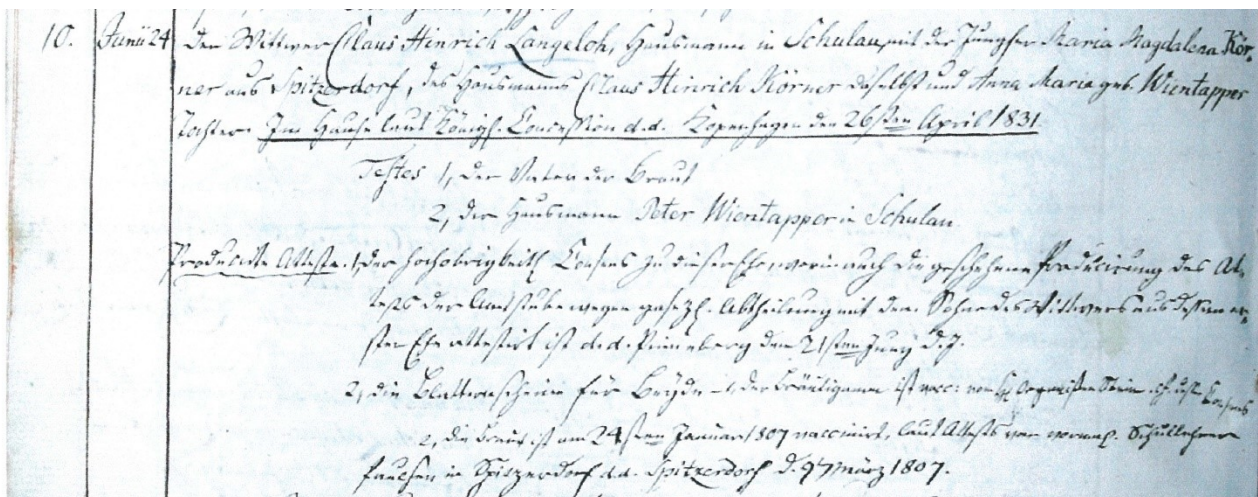 10. Junii 24 Der Wittwer Claus Hinrich Langeloh, Hausmann in Schulau, mit der Jungfer Maria Magdalena Kör-
ner aus Spitzerdorf, des Hausmanns Claus Hinrich Körner daselbst und Anna Maria geb. Wientapper
Tochter. Im Hause laut Königl. Concession d.d. Kopenhagen den 26sten April 1831.
Testes 1, der Vater der Braut
2, der Hausmann Peter Wientapper in Schulau
Producirte Atteste. 1, der hochobrigkeitl. Consens zu dieser Ehe, worin auch die geschehene Producirung des At-
tests der Amtstube wegen gesetzl. Abtheilung mit dem Sohn des Wittwers aus dessen er-
sten Ehe attestirt ist d.d. Pinneberg den 21sten Juny d.J.
2, die Blatternscheine für Beyde 1, der Bräutigam ist vacc: von Consens
2, die Braut ist am 24sten Januar 1807 vaccinirt, laut Attests vom vormal. Schullehrer
Paulsen in Spitzerdorf d.d. Spitzerdorf d. 9 März 1807.